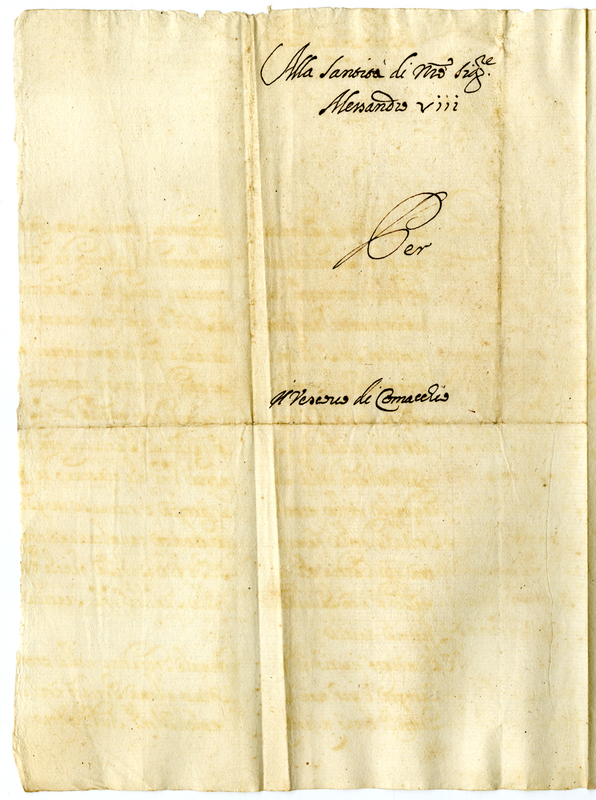 Alla Santità di Nrõ Sig.re
Alessandro viii
Per
Il Vescovo di Comacchio